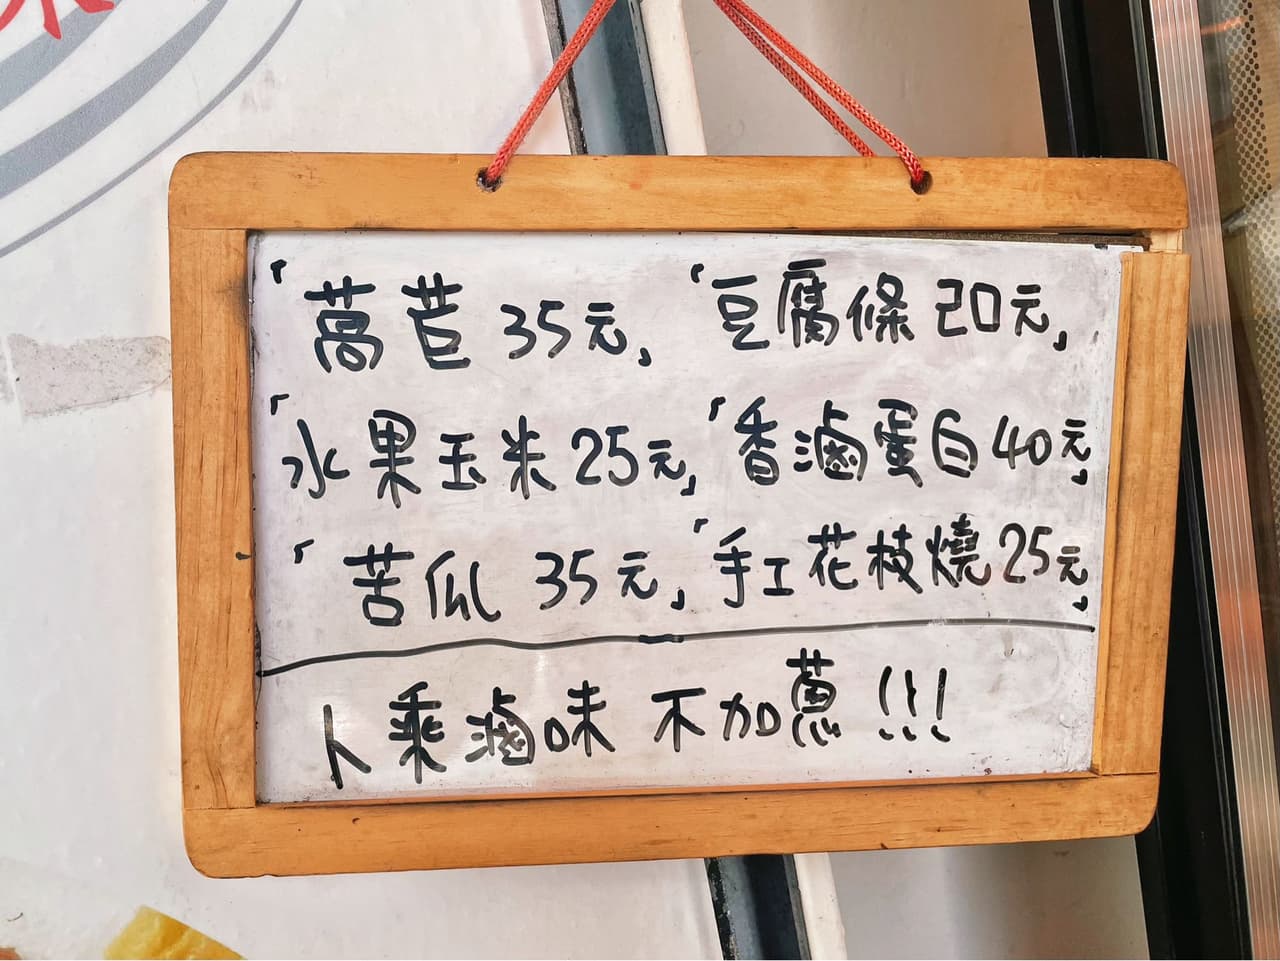 「萵苣 35元」「豆腐條 20元」
「水果玉米 25元」「香滷蛋白 40元」
「苦瓜 35元」「手工花枝燒 25元」
卜乘滷味 不加蔥!!!